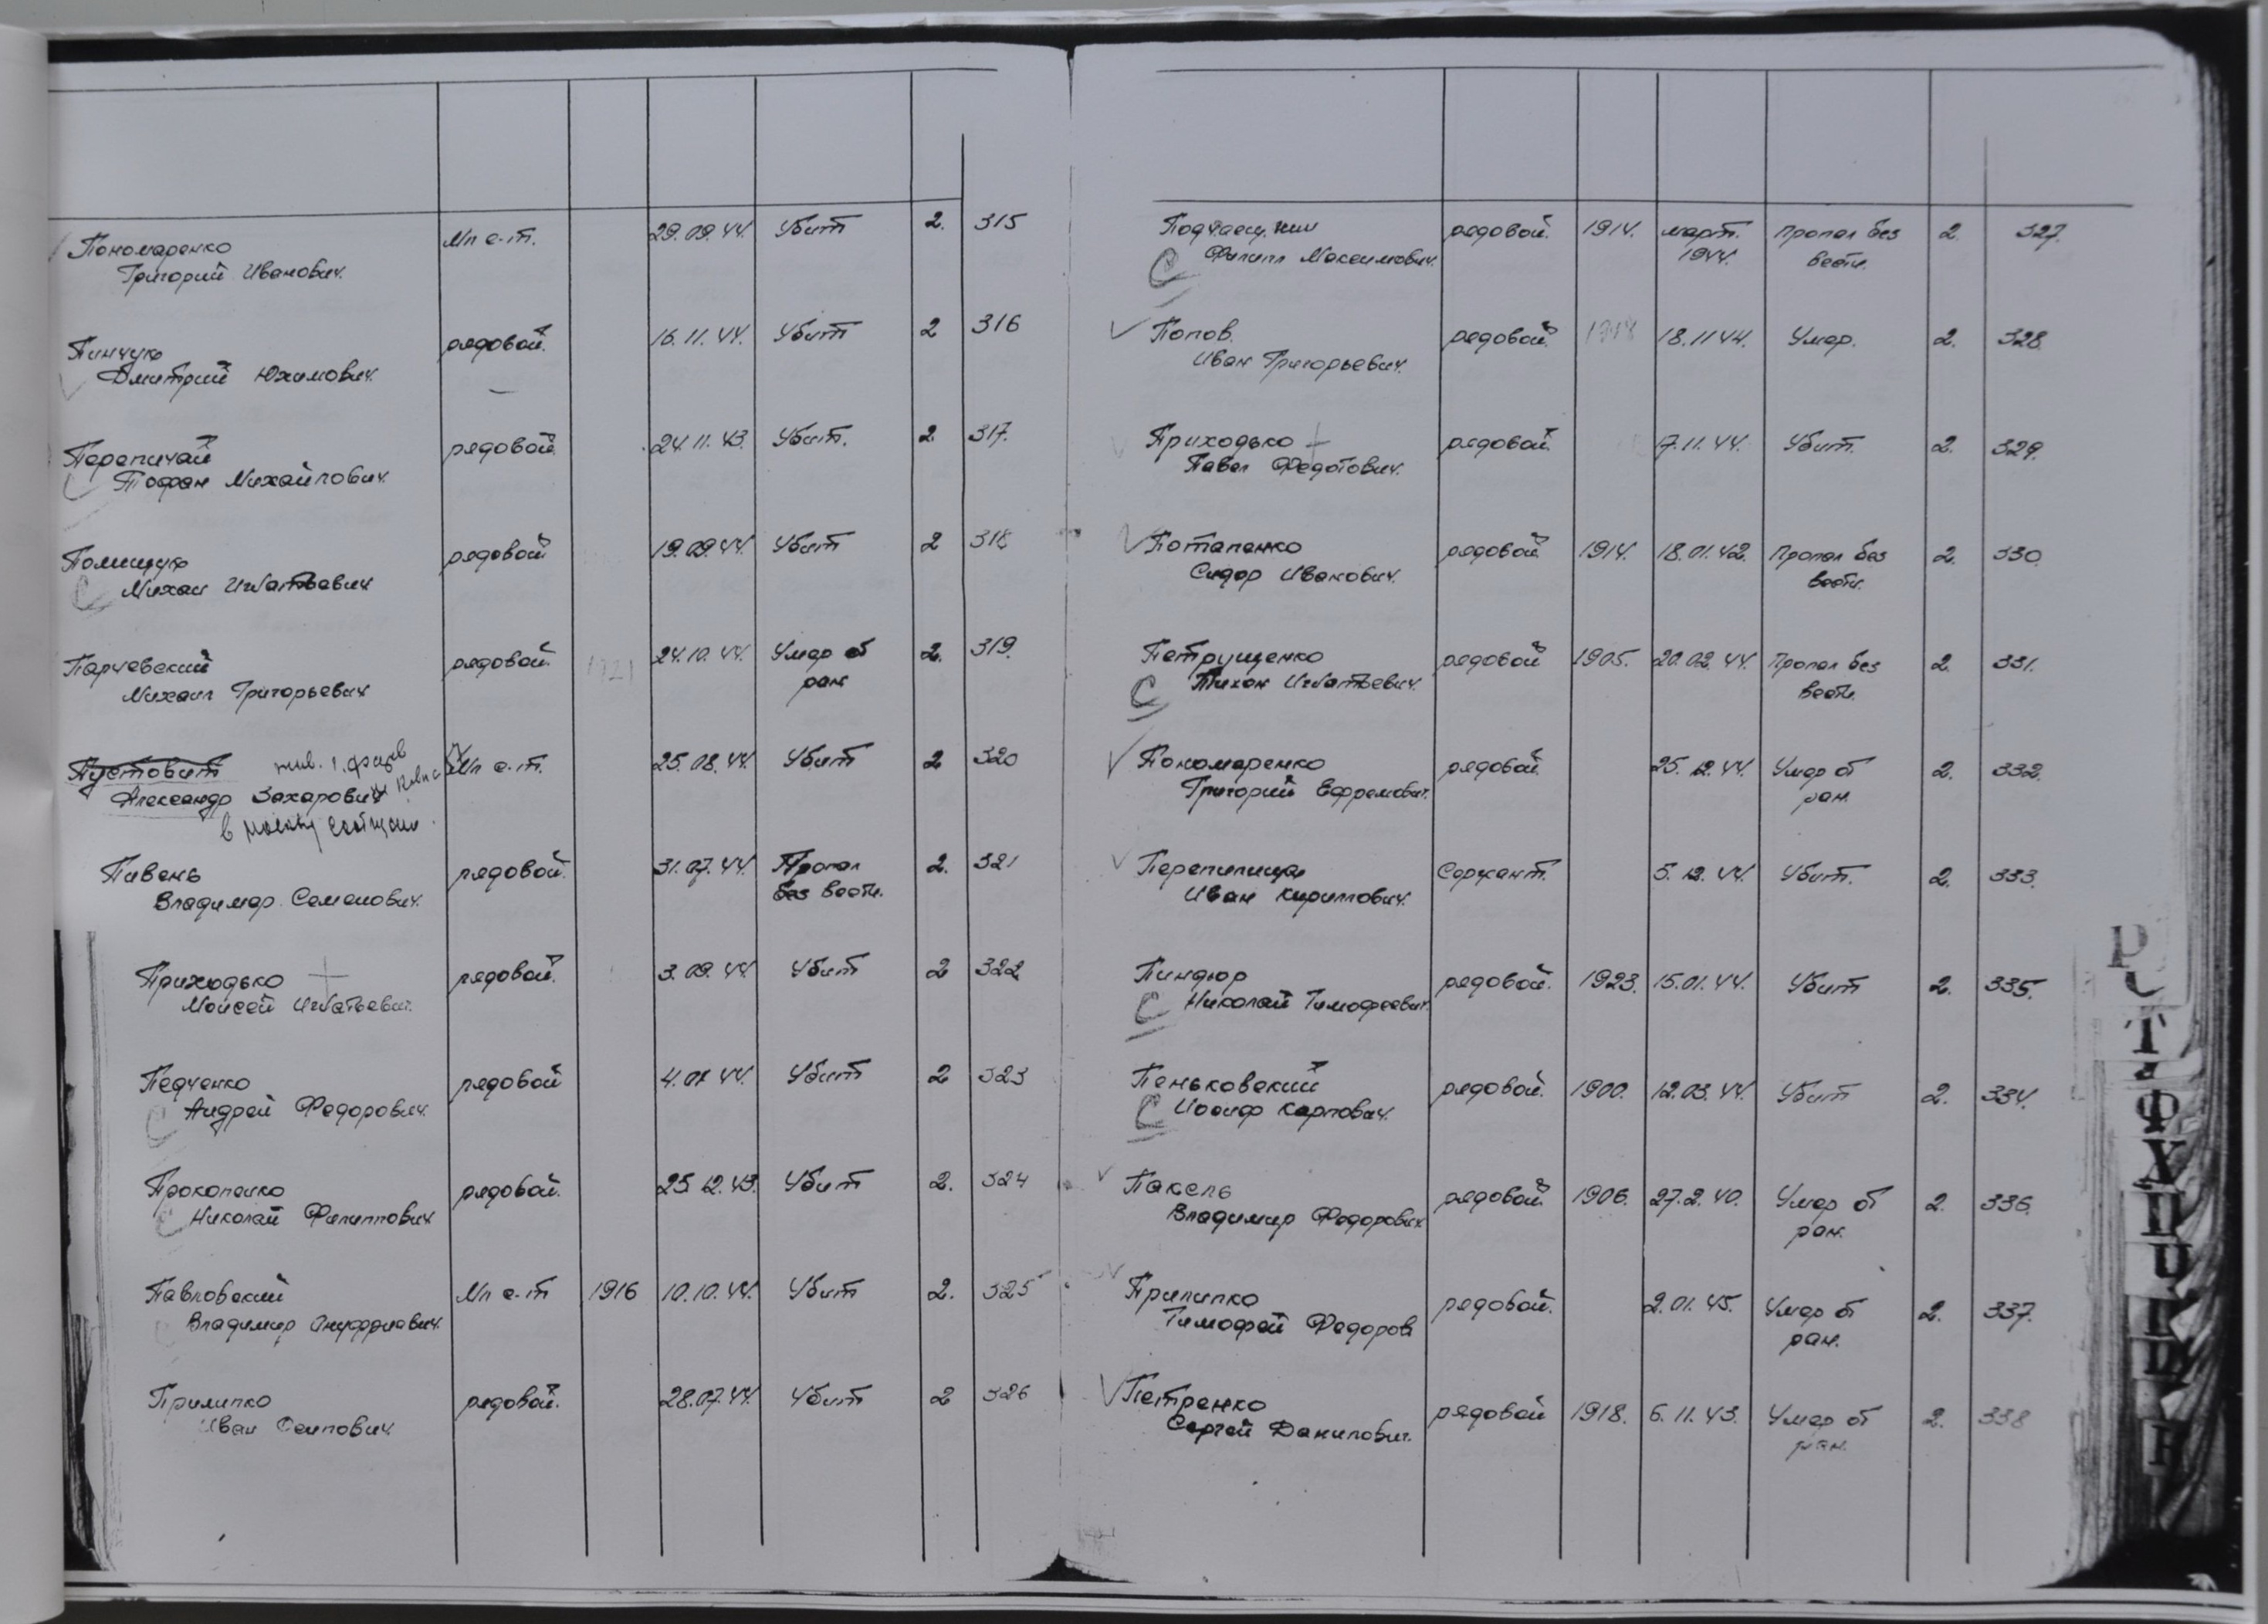 Пономаренко Мл с-т. 29.09.44. Убит 2. 315
Григорий Иванович.
Пинчук рядовой. 16.11.44. Убит 2 316
Дмитрий Юхимович.
Перепичай рядовой. 24.11.43. Убит. 2. 317.
Тофан Михайлович.
Полищук рядовой 19.09.44. Убит 2 318
Михаи Игнатьевич
Парчевский рядовой. 1921 24.10.44. Умер от 2. 319.
Михаил Григорьевич ран
Пустовит Мл с-т. 25.08.44. Убит 2 320
Александр Захарович
в сообщено.
Пивень рядовой. 31.07.44. Пропал 2. 321
Владимер. Семенович. без вести.
Приходько рядовой. 3.09.44 Убит 2 322
Моисей Игнатьевич.
Педченко рядовой 44. Убит 2 323
Андрей Федорович.
Прокопенко рядовой. 25.12.43. Убит 2. 324
Николай Филиппович
Павловский Мл с-т 1916 10.10.44. Убит 2. 325
Владимир
Прилипко рядовой. 28.07.44. Убит 2 326
Иван Осипович.
рядовой. 1914. март. Пропал без 2. 327.
С Филипп Максимович. 1944. вести.
Попов. рядовой. 18.11.44. Умер. 2. 328.
Иван Григорьевич.
Приходько рядовой. 7.11.44. Убит. 2. 329.
Павел Федотович.
Потапенко рядовой 1914. 18.01.42. Пропал без 2. 330.
Сидор Иванович. вести.
Петрущенко рядовой 1905. 20.02.44. Пропал без 2. 331.
С Тихон Игнатьевич. вести.
Пономаренко рядовой 25.12.44. Умер от 2. 332.
Григорий Ефремович. ран.
Перепилица Сержант. 5.12.44. Убит. 2. 333.
Иван Кириллович.
Пиндюр рядовой. 1923. 15.01.44. Убит 2. 335.
С Николай Тимофеевич.
Пеньковский рядовой. 1900. 12.03.44. Убит 2. 334.
С Иосиф Карпович.
Пакель рядовой. 1906. 27.2.40. Умер от 2. 336.
Владимир Федорович ран.
Прилипко рядовой. 2.01.45. Умер от 2. 337.
Тимофей Федоров ран.
Петренко рядовой 1918. 6.11.43. Умер от 2. 338
Сергей Данилович. ран.
Т
Ф
Х